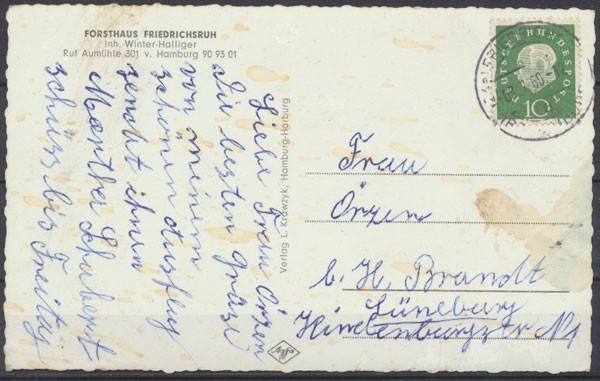 FORSTHAUS FRIEDRICHSRUH
Inh. Winter-Halliger
Ruf Aumühle 301 v. Hamburg 90 93 01
Liebe Frau Örzen
die besten Grüße
von meinem
schönen Ausflug
sendet ihnen
Maertha Schubert
schüss bis Freitag
Verlag L. Krawzyk, Hamburg-Harburg
DEUTSCHE BUNDESPOST
10
Frau
Örzen
b. H. Brandt
Lüneburg
Hindenburgstr N1